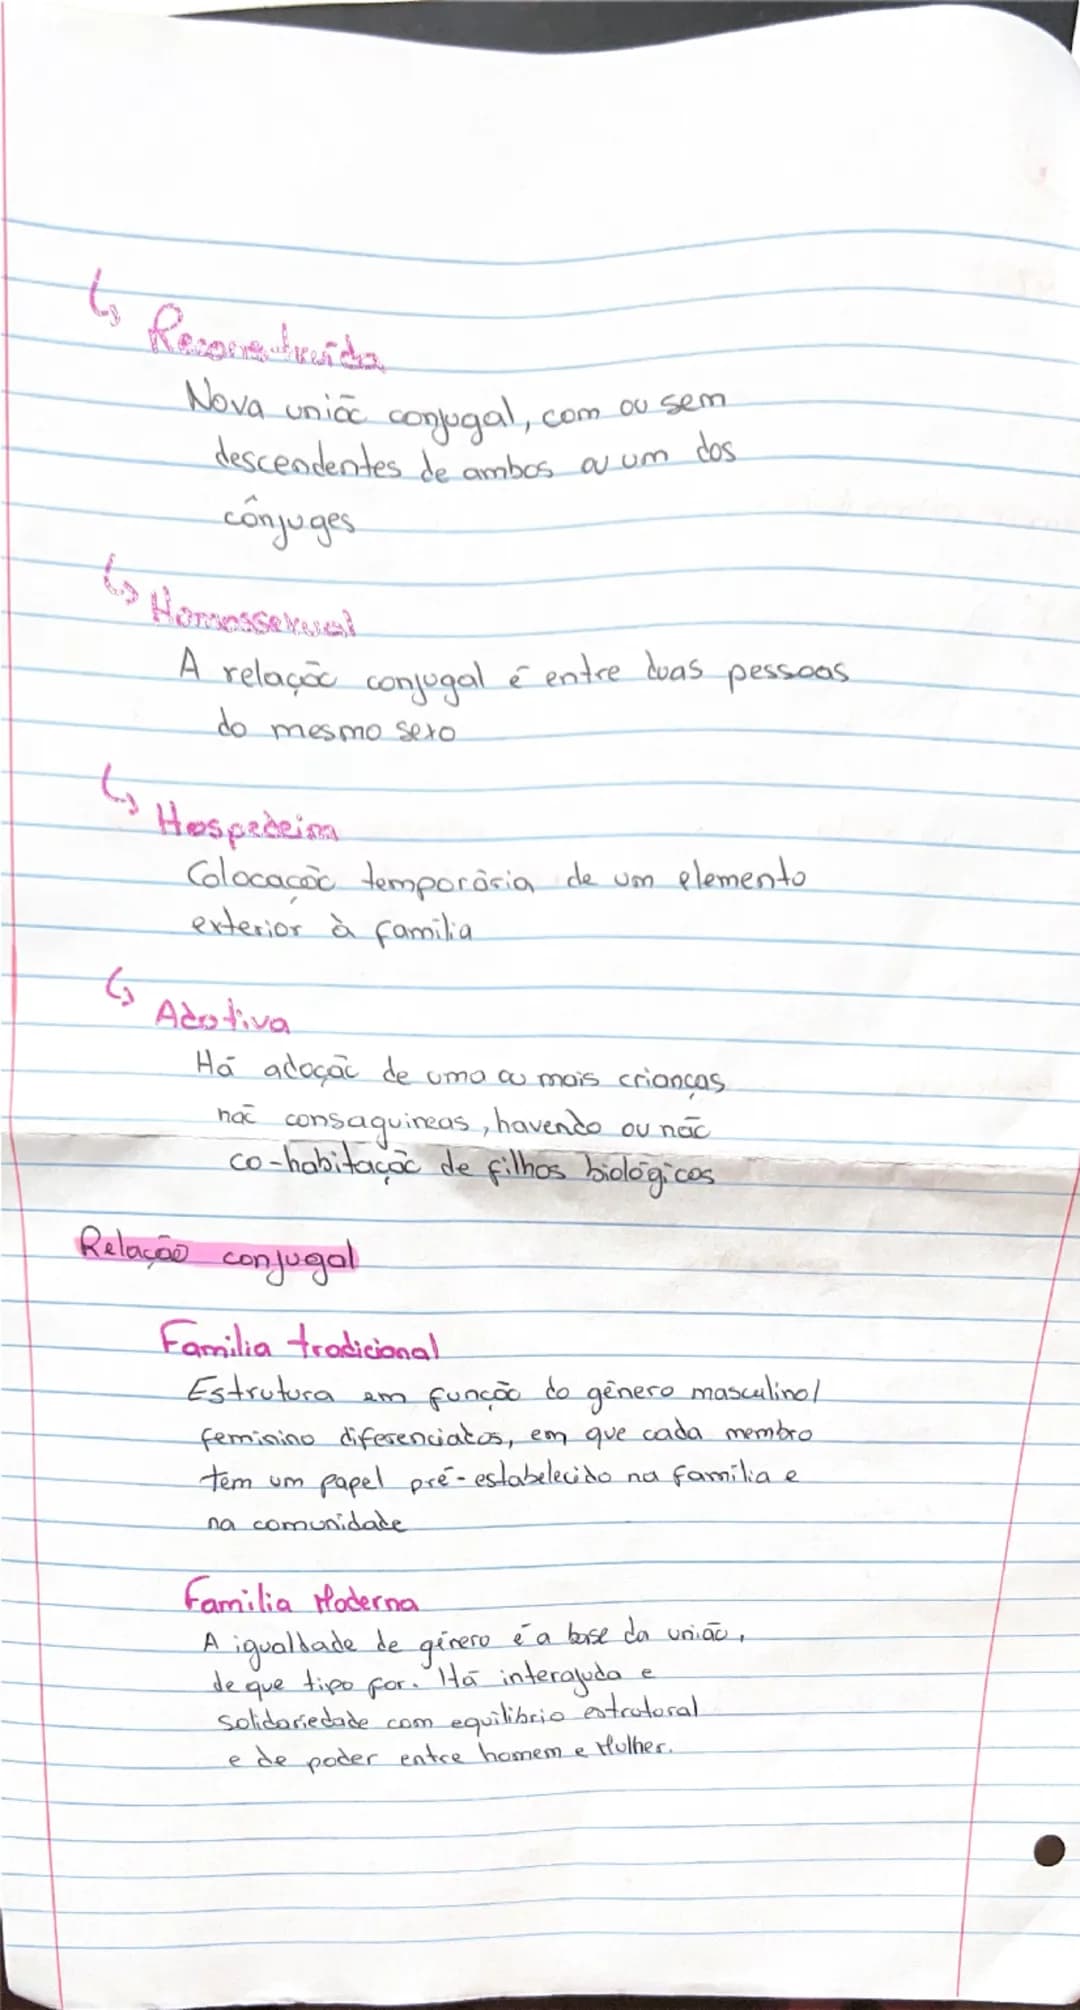 ↳ Reconstruída
Nova união conjugal, com ou sem
descendentes de ambos ou um dos
cônjuges
↳ Homossexual
A relação conjugal é entre duas pessoas
do mesmo sexo
↳ Hospedeira
Colocação temporária de um elemento
exterior à família
↳ Adotiva
Há adoção de uma ou mais crianças
não consaguineas, havendo ou não
co-habitação de filhos biológicos
Relação conjugal
Família tradicional
Estrutura em função do género masculino/
feminino diferenciados, em que cada membro
tem um papel pré-estabelecido na família e
na comunidade
Família Moderna
A igualdade de género é a base da união,
de que tipo for. Há interajuda e
solidariedade com equilíbrio estrutural
e de poder entre homem e Mulher.